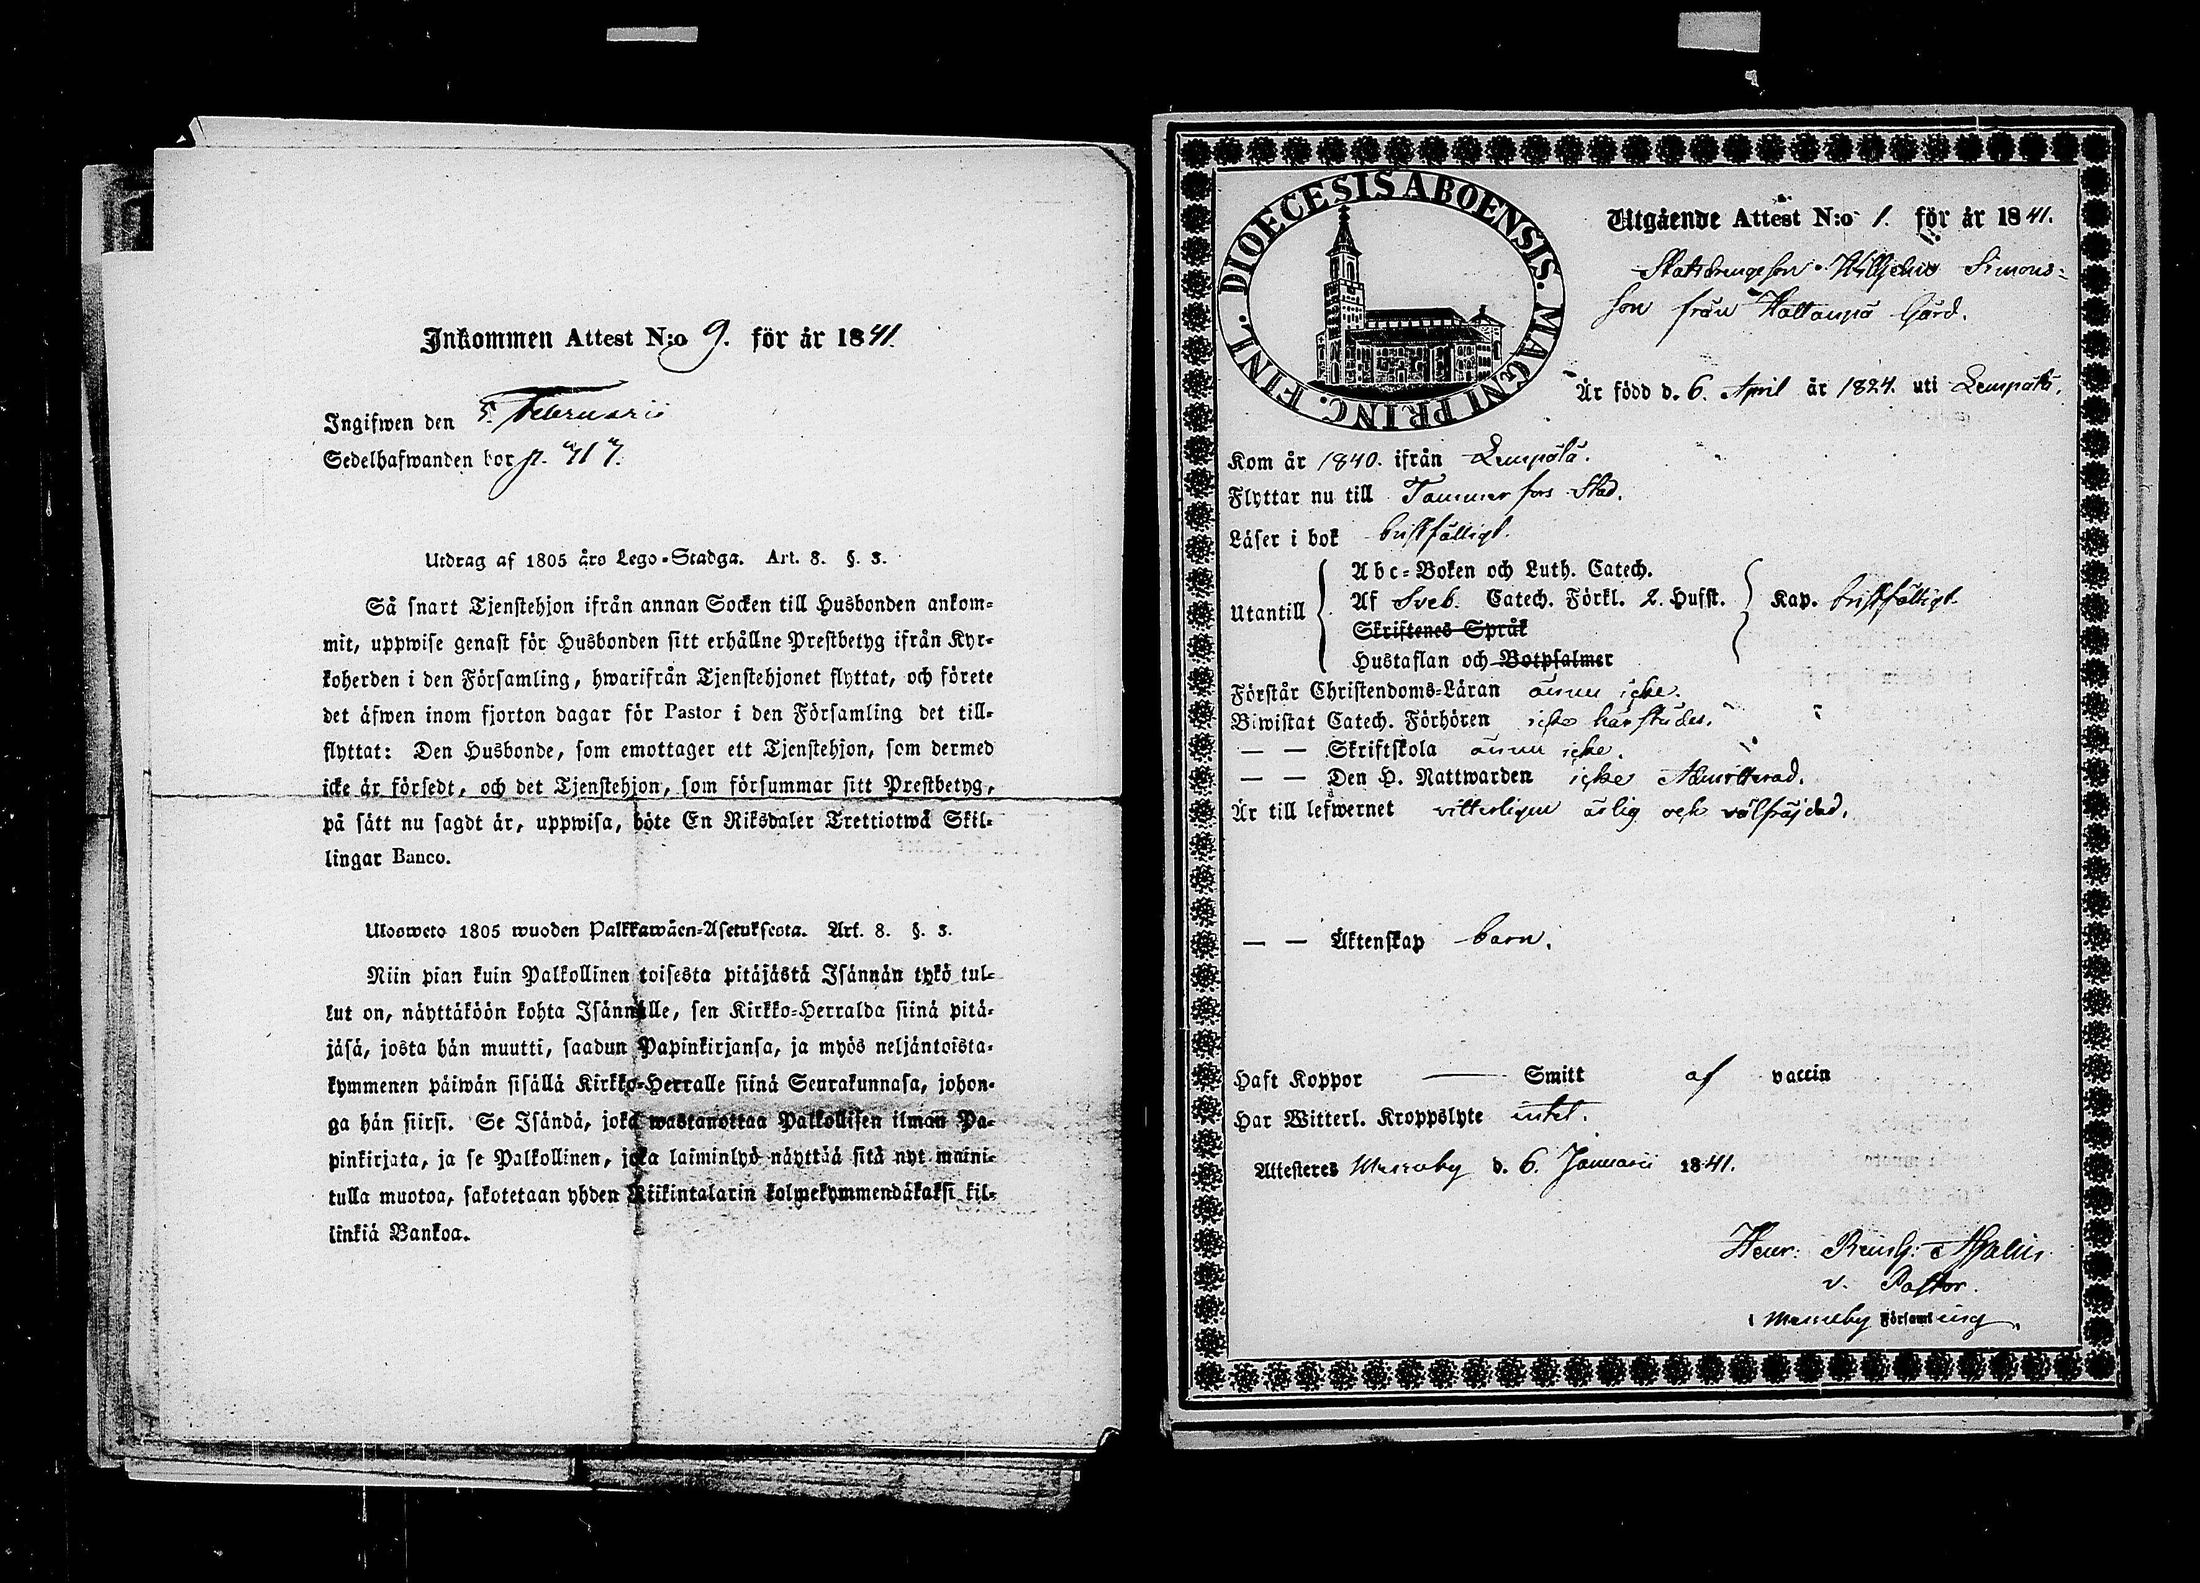 Inkommen Attest N:o 9. för år 1841.
Ingifwen den 5. Februarii
Sedelhafwanden bor
Utdrag af 1805 års Lego-Stadga. Art. 8. §. 3.
Så snart Tjenstehjon ifrån annan Socken till Husbonden ankom=
mit, uppwise genast för Husbonden sitt erhållne Prestbetyg ifrån Kyr=
koherden i den Församling, hwarifrån Tjenstehjonet flyttat, och förete
det äfwen inom fjorton dagar för Pastor i den Församling det till=
flyttat: Den Husbonde, som emottager ett Tjenstehjon, som dermed
icke är försedt, och det Tjenstehjon, som försummar sitt Prestbetyg,
på sätt nu sagdt är, uppwisa, böte En Riksdaler Trettiotwå Skil=
lingar Banco.
Ulosweto 1805 wuoden Palkkawäen-Asetuksesta. Art. 8. §. 3.
Niin pian kuin Palkollinen toisesta pitäjästä Isännän tykö tul=
lut on, näyttäköön kohta Isännälle, sen Kirkko=Herralda siinä pitä=
jäsä, josta hän muutti, saadun Papinkirjansa, ja myös neljäntoista=
kymmenen päiwän sisällä Kirkko=Herralle siinä Seurakunnasa, johon=
ga hän siirsi. Se Isändä, joka wastanottaa Palkollisen ilman Pa=
pinkirjata, ja se Palkollinen, joka laiminlyö näyttää sitä nyt maini=
tulla muotoa, sakotetaan yhden Riikintalarin kolmekymmendäkaksi kil=
linkiä Bankoa.
DIOECESIS ABOENSIS. MAGNI PRINC. FINL.
Utgående Attest N:o 1. för år 1841.
Statsdrengeson Wilhelm Simons=
son från Hattanpä Gård.
Är född d. 6. April år 1824. uti Lempälä.
Kom år 1840. ifrån Lempälä.
Flyttar nu till Tammerfors Stad.
Läser i bok bristfälligt.
Utantill
Abc=Boken och Luth. Catech.
Af Sveb. Catech. Förkl. 2. Hufst. Kap. bristfälligt.
Skriftenes Språk
Hustaflan och Botpsalmer
Förstår Christendoms=Läran ännu icke.
Biwistat Catech. Förhören icke härstädes.
— — Skriftskola ännu icke.
— — Den H. Nattwarden icke Admitterad.
Är till lefwernet vitterligen ärlig och välfräjdad.
— — Äktenskap barn.
Haft Koppor — Smitt af vaccin
Har Witterl. Kroppslyte intet.
Attesteres Messuby d. 6. Januarii 1841.
Henr:
v. Pastor.
i Messuby Församling.